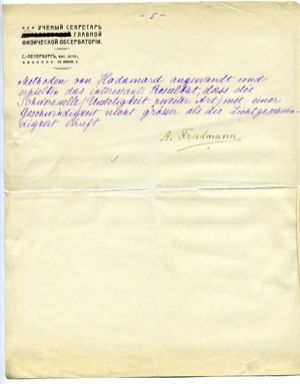 - 5 -
УЧЕНЫЙ СЕКРЕТАРЬ
ГЛАВНОЙ
ФИЗИЧЕСКОЙ ОБСЕРВАТОРІИ.
С.-ПЕТЕРБУРГЪ, ВАС. ОСТР.,
23 ЛИНІЯ, 2
Methoden von Hadamard angewandt und
erzielten das interessante Resultat, dass die
Schwerewelle (Unstetigkeit zweiter Art) mit einer
Geschwindigkeit nicht grösser als die Lichtgeschwin-
digkeit läuft.
A. Friedmann